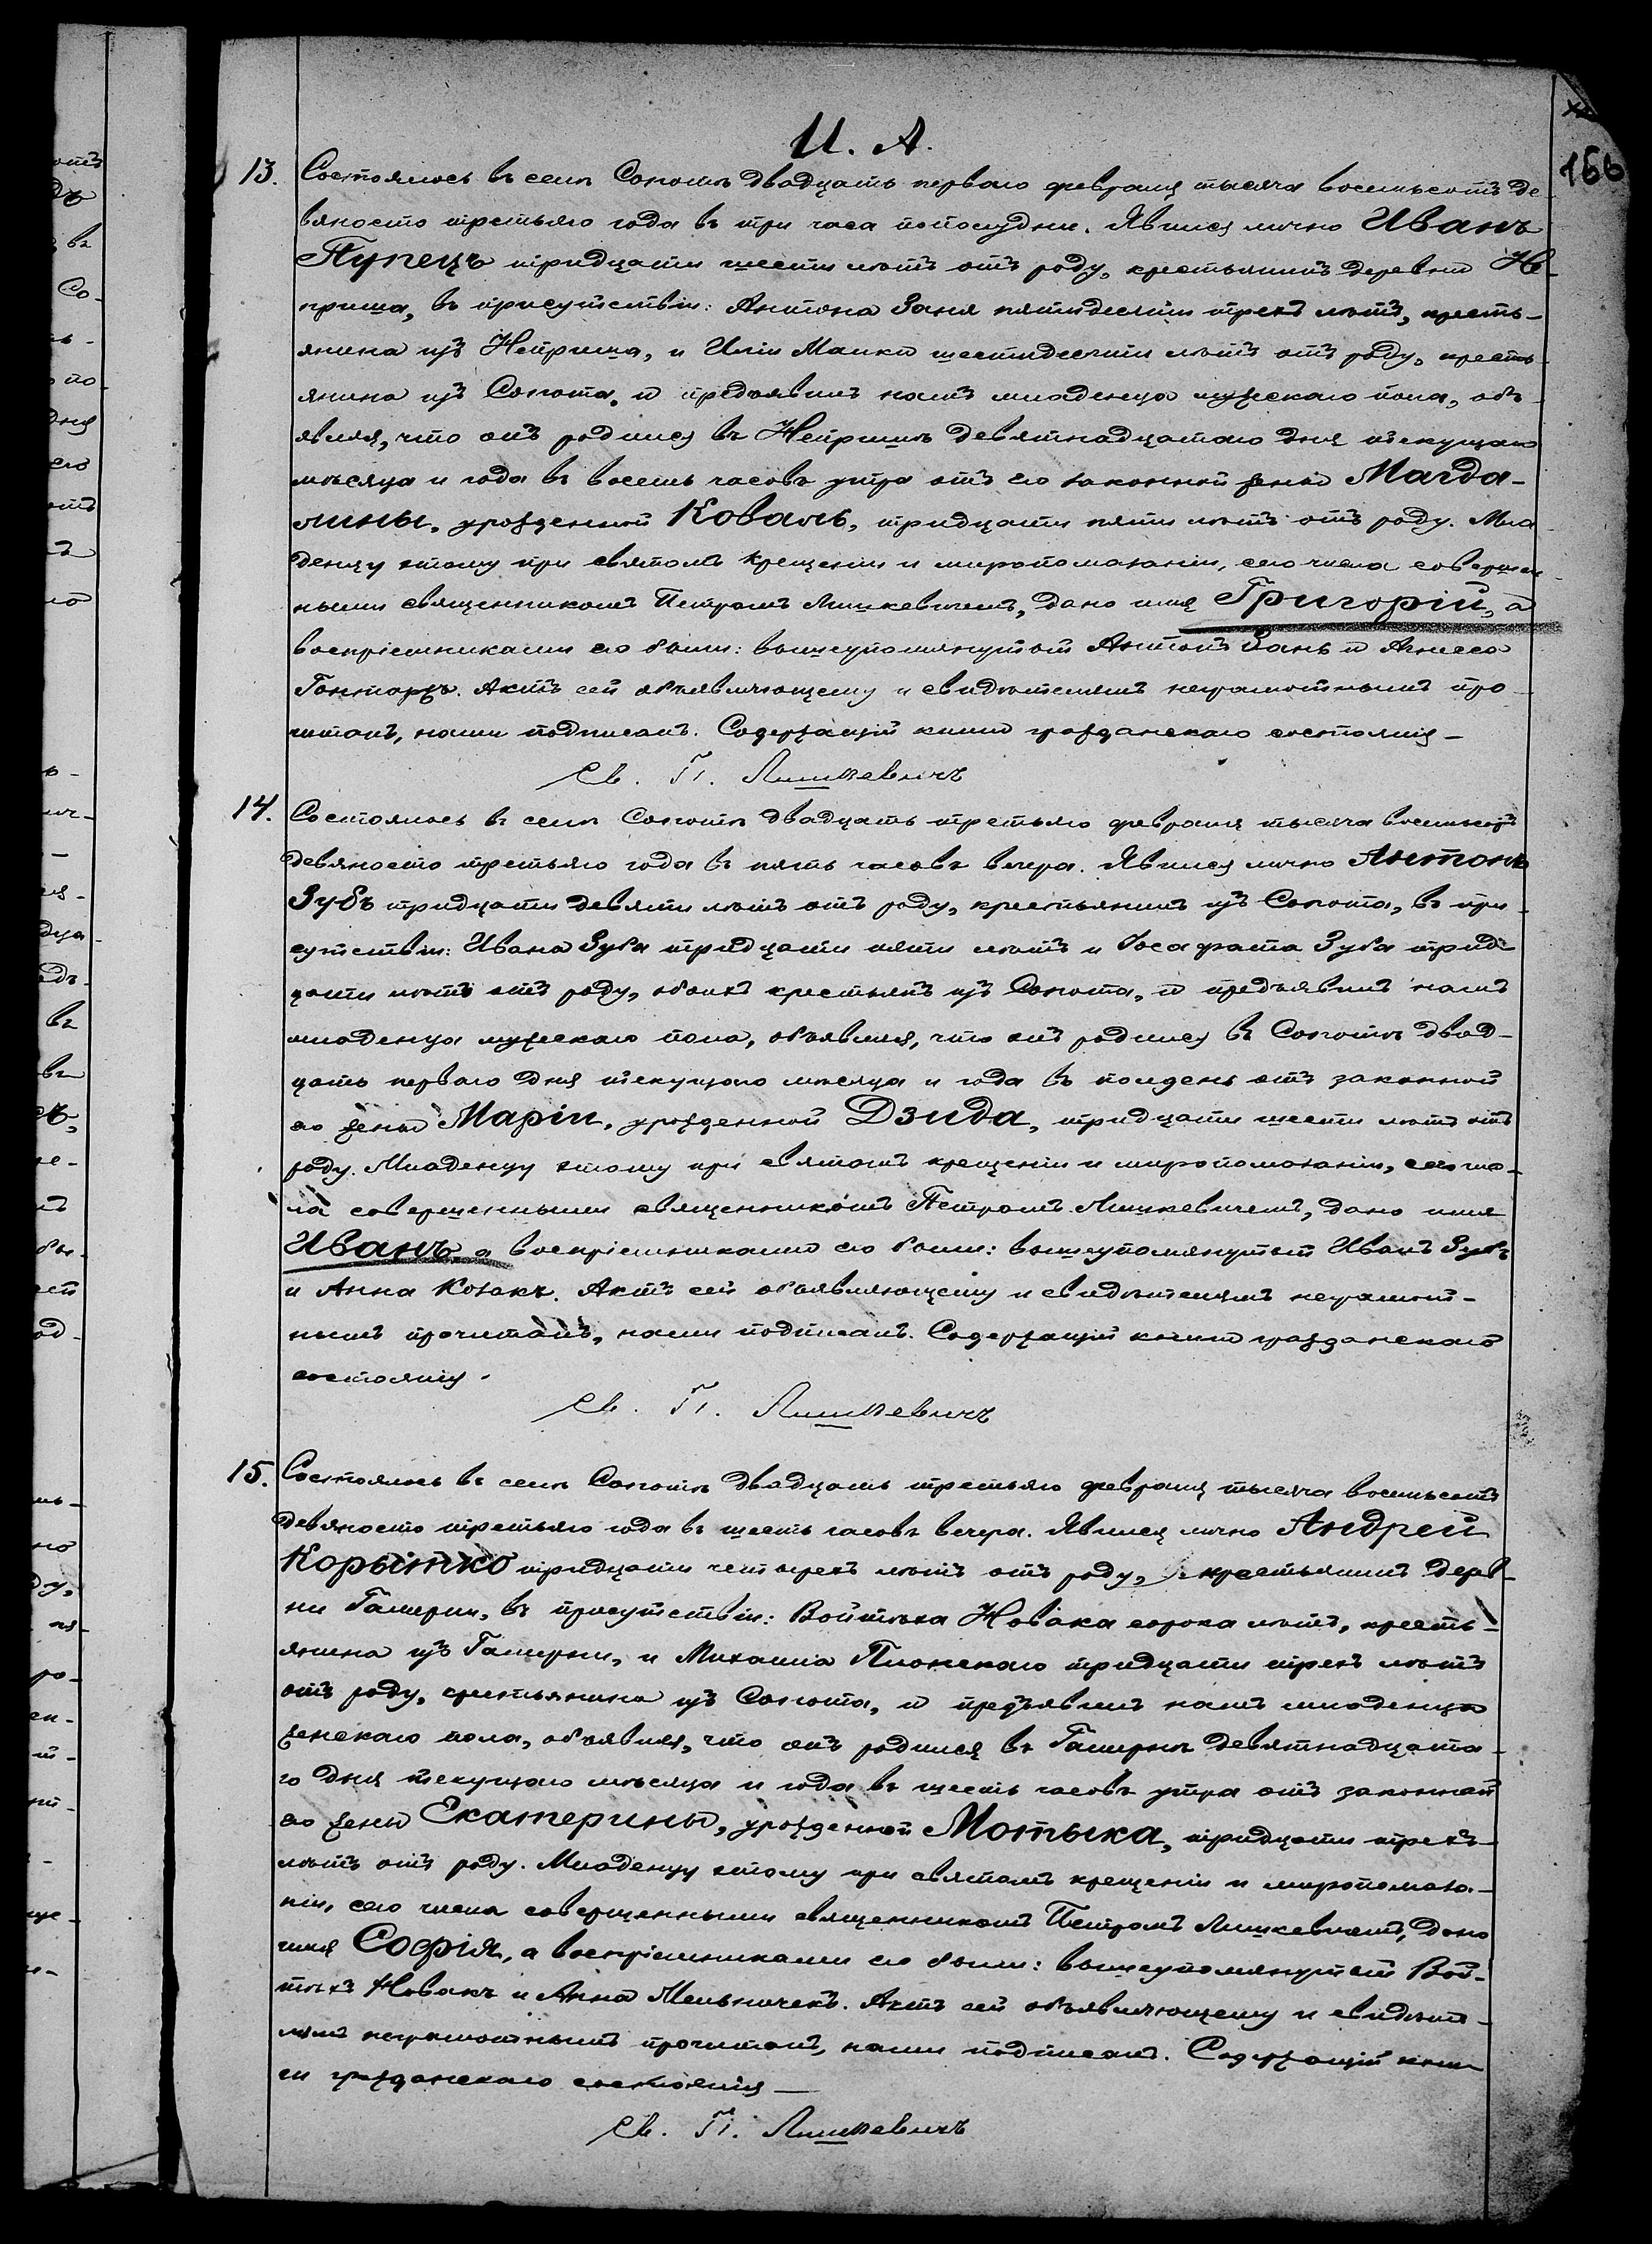 И. А.
156
13. Состоялось въ селѣ Сопотѣ двадцать перваго февраля тысяча восемьсотъ де-
вяносто третьяго года въ три часа пополудни. Явился лично Иванъ
Пупецъ тридцати шести лѣтъ отъ роду, крестьянинъ деревни Не-
приша, въ присутствіи: Антона Заня пятидесяти трехъ лѣтъ, кресть-
янина изъ Неприша, и Иліи Малки шестидесяти лѣтъ отъ роду, кресть-
янина изъ Сопота, и предъявилъ намъ младенца мужескаго пола, объ-
являя, что онъ родился въ Непришѣ девятнадцатаго дня текущаго
мѣсяца и года въ восемь часовъ утра отъ его законной жены Магда-
лины, урожденной Коваль, тридцати пяти лѣтъ отъ роду. Мла-
денцу этому при святомъ крещеніи и миропомазаніи, сего числа совершен-
ными священникомъ Петромъ Лишкевичемъ, дано имя Григорій, а
воспріемниками его были: вышеупомянутый Антонъ Зань и Агнеса
Гонтаржъ. Актъ сей объявляющему и свидѣтелямъ неграмотнымъ про-
читанъ, нами подписанъ. Содержащій книги гражданскаго состоянія —
Св. П. Лишкевичъ
14. Состоялось въ селѣ Сопотѣ двадцать третьяго февраля тысяча восемьсотъ
девяносто третьяго года въ пять часовъ вечера. Явился лично Антонъ
Зубъ тридцати девяти лѣтъ отъ роду, крестьянинъ изъ Сопота, въ при-
сутствіи: Ивана Зуба тридцати пяти лѣтъ и Іосафата Зуба трид-
цати лѣтъ отъ роду, обоихъ крестьянъ изъ Сопота, и предъявилъ намъ
младенца мужескаго пола, объявляя, что онъ родился въ Сопотѣ двад-
цать перваго дня текущаго мѣсяца и года въ полдень отъ законной
его жены Маріи, урожденной Дзида, тридцати шести лѣтъ отъ
роду. Младенцу этому при святомъ крещеніи и миропомазаніи, сего чис-
ла совершенными священникомъ Петромъ Лишкевичемъ, дано имя
Иванъ, а воспріемниками его были: вышеупомянутый Иванъ Зубъ
и Анна Козакъ. Актъ сей объявляющему и свидѣтелямъ неграмот-
нымъ прочитанъ, нами подписанъ. Содержащій книги гражданскаго
состоянія.
Св. П. Лишкевичъ
15. Состоялось въ селѣ Сопотѣ двадцать третьяго февраля тысяча восемьсотъ
девяносто третьяго года въ шесть часовъ вечера. Явился лично Андрей
Корытко тридцати четырехъ лѣтъ отъ роду, крестьянинъ дерев-
ни Гамерни, въ присутствіи: Войтѣха Новака сорока лѣтъ, кресть-
янина изъ Гамерни, и Михаила Плонскаго тридцати трехъ лѣтъ
отъ роду, крестьянина изъ Сопота, и предъявилъ намъ младенца
женскаго пола, объявляя, что онъ родился въ Гамернѣ девятнадцата-
го дня текущаго мѣсяца и года въ шесть часовъ утра отъ законной
его жены Екатерины, урожденной Мотыка, тридцати трехъ
лѣтъ отъ роду. Младенцу этому при святомъ крещеніи и миропомаза-
ніи, сего числа совершенными священникомъ Петромъ Лишкевичемъ, дано
имя Софія, а воспріемниками его были: вышеупомянутый Вой-
тѣхъ Новакъ и Анна Мельничекъ. Актъ сей объявляющему и свидѣте-
лямъ неграмотнымъ прочитанъ, нами подписанъ. Содержащій кни-
ги гражданскаго состоянія —
Св. П. Лишкевичъ